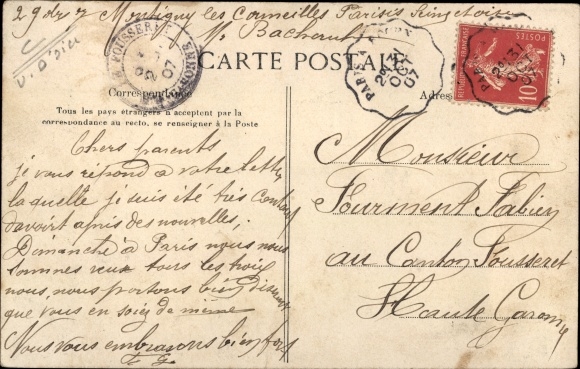 29 Montigny les Cormeilles Parisis Seine et oise
V. d'Oise
CARTE POSTALE
Correspondance
Adres
Tous les pays étrangers n'acceptent pas la
correspondance au recto, se renseigner à la Poste
FOUSSERET
07
PARIS
31
OCT
07
10
Chers parents
je vous répond a votre lettre
laquelle je suis été très content
davoirt apris des nouvelles,
Dimanche à Paris nous nous
sommes veux tous les trois
nous nous portons bien
que vous en soiez de meme
Nous vous embrassons bien fort
Monsieur
Fourment Fabien
au Canton Fousseret
Haute Garonne